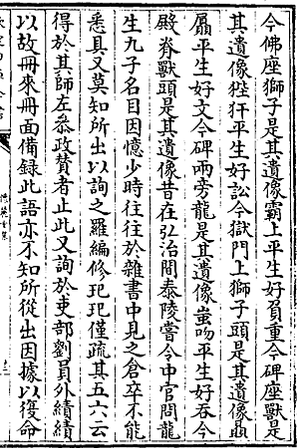 今佛座獅子是其遺像霸上平生好負重今碑座獸是
其遺像狴犴平生好訟今獄門上獅子頭是其遺像贔
屭平生好文今碑兩旁龍是其遺像蚩吻平生好吞今
殿脊獸頭是其遺像昔在弘治間泰陵嘗令中官問龍
生九子名目因憶少時往往於雜書中見之倉卒不能
悉具又莫知所出以詢之羅編修玘玘僅疏其五六云
得於其師左叅政賛者止此又詢於吏部劉員外績績
以故冊來冊面備録此語亦不知所從出因據以復命